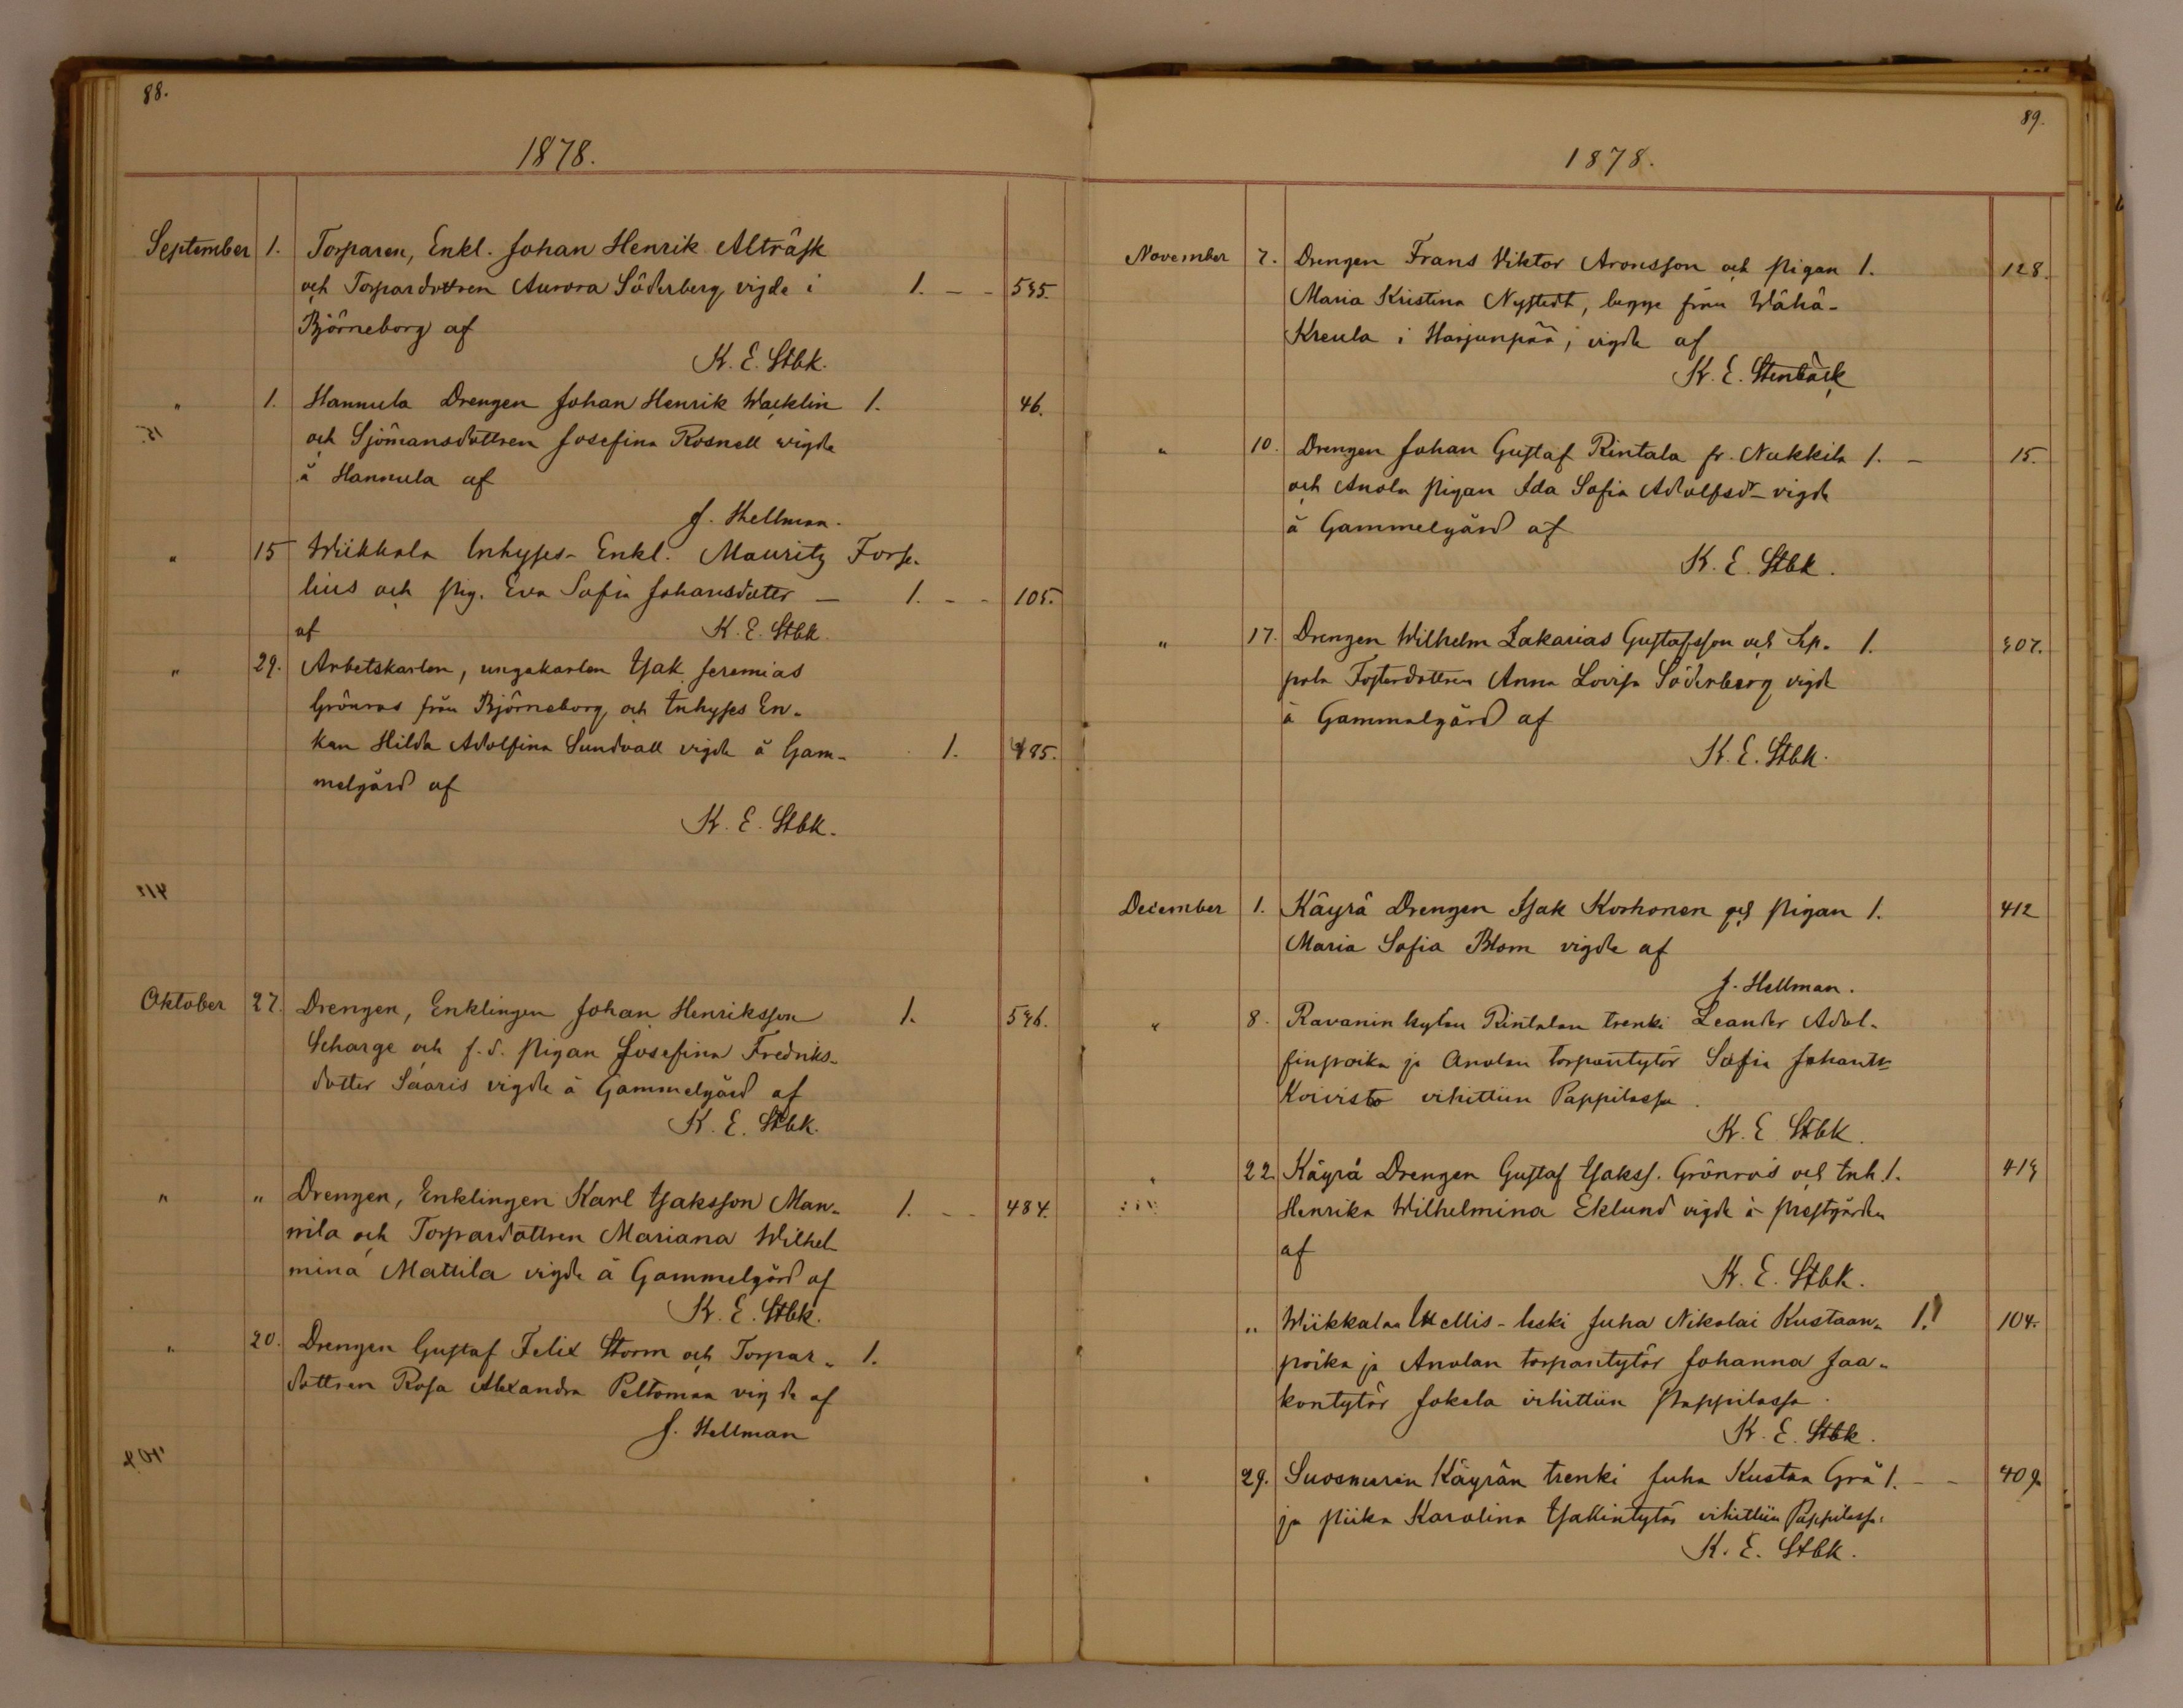 88.
1878.
September 1. Torparen, Enkl. Johan Henrik Alträsk
och Torpardottren Aurora Söderberg vigde i 1. - - 535.
Björneborg af
K. E. Stbk.
" 1. Hannula Drengen Johan Henrik Wacklin 1. 46.
och Sjömansdottren Josefina Rosnell vigde
å Hannula af
J. Hellman.
" 15 Wiikkala Inhyses- Enkl. Mauritz Forse-
lius och pig. Eva Sofia Johansdotter - 1. - - 105.
af K. E. Stbk.
" 29. Arbetskarlen, ungakarlen Isak Jeremias
Grönroos från Björneborg, och Inhyses En-
kan Hilda Adolfina Sundvall vigde å Gam- 1. 495.
melgård af
K. E. Stbk.
Oktober 27. Drengen, Enklingen Johan Henriksson 1. 546.
Scharge och f.d. pigan Josefina Fredriks-
dotter Saaris vigde å Gammelgård af
K. E. Stbk.
" " Drengen, Enklingen Karl Isaksson Man- 1. - - 484.
nila och Torpardottren Mariana Wilhel-
mina Mattila vigde å Gammelgård af
K. E. Stbk.
" 20. Drengen Gustaf Felix Storm och Torpar- 1.
dottren Rosa Alexandra Peltomaa vigde af
J. Hellman
89.
1878.
November 7. Drengen Frans Viktor Aronsson och pigan 1. 128.
Maria Kristina Nystedt, begge från Wähä-
Kreula i Harjunpää, vigde af
K. E. Stenbäck
" 10. Drengen Johan Gustaf Rintala fr. Nukkila 1. - 15.
och Anola pigan Ida Sofia Adolfsdr vigde
å Gammelgård af
K. E. Stbk.
" 17. Drengen Wilhelm Zakarias Gustafsson och Sep- 1. 307.
pola Fosterdottren Anna Lovisa Söderberg vigde
å Gammelgård af
K. E. Stbk.
December 1. Käyrä Drengen Isak Korhonen och pigan 1. 412
Maria Sofia Blom vigde af
J. Hellman.
" 8. Ravanin kylän Rintalan trenki Leander Adol-
finpoika ja Anolan torpantytör Sofia Johants
Koivisto vihittiin Pappilassa.
K. E. Stbk.
" 22. Käyrä Drengen Gustaf Isakss. Grönroos och Inh. 1. 414
Henrika Wilhelmina Eklund vigde å prestgården
af
K. E. Stbk.
" Wiikkalan Itellis-leski Juha Nikolai Kustaan- 1. 104.
poika ja Anolan torpantytär Johanna Jaa-
kontytär Jokela vihittiin pappilassa.
K. E. Stbk.
29. Suosmerin Käyrän trenki Juha Kustaa Grå 1. - - 409.
ja piika Karolina Isakintytär vihittiin Pappilassa.
K. E. Stbk.